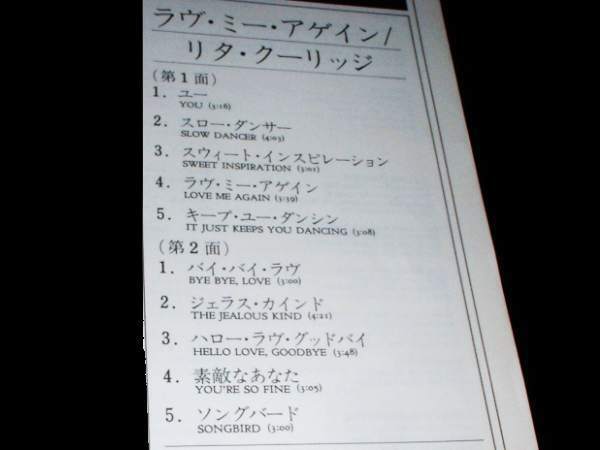 ラヴ・ミー・アゲイン/
リタ・クーリッジ
(第1面)
1. ユー
YOU (3:16)
2. スロー・ダンサー
SLOW DANCER (4:03)
3. スウィート・インスピレーション
SWEET INSPIRATION (3:01)
4. ラヴ・ミー・アゲイン
LOVE ME AGAIN (3:39)
5. キープ・ユー・ダンシン
IT JUST KEEPS YOU DANCING (3:08)
(第2面)
1. バイ・バイ・ラヴ
BYE BYE, LOVE (3:00)
2. ジェラス・カインド
THE JEALOUS KIND (4:21)
3. ハロー・ラヴ・グッドバイ
HELLO LOVE, GOODBYE (3:48)
4. 素敵なあなた
YOU'RE SO FINE (3:05)
5. ソングバード
SONGBIRD (3:00)